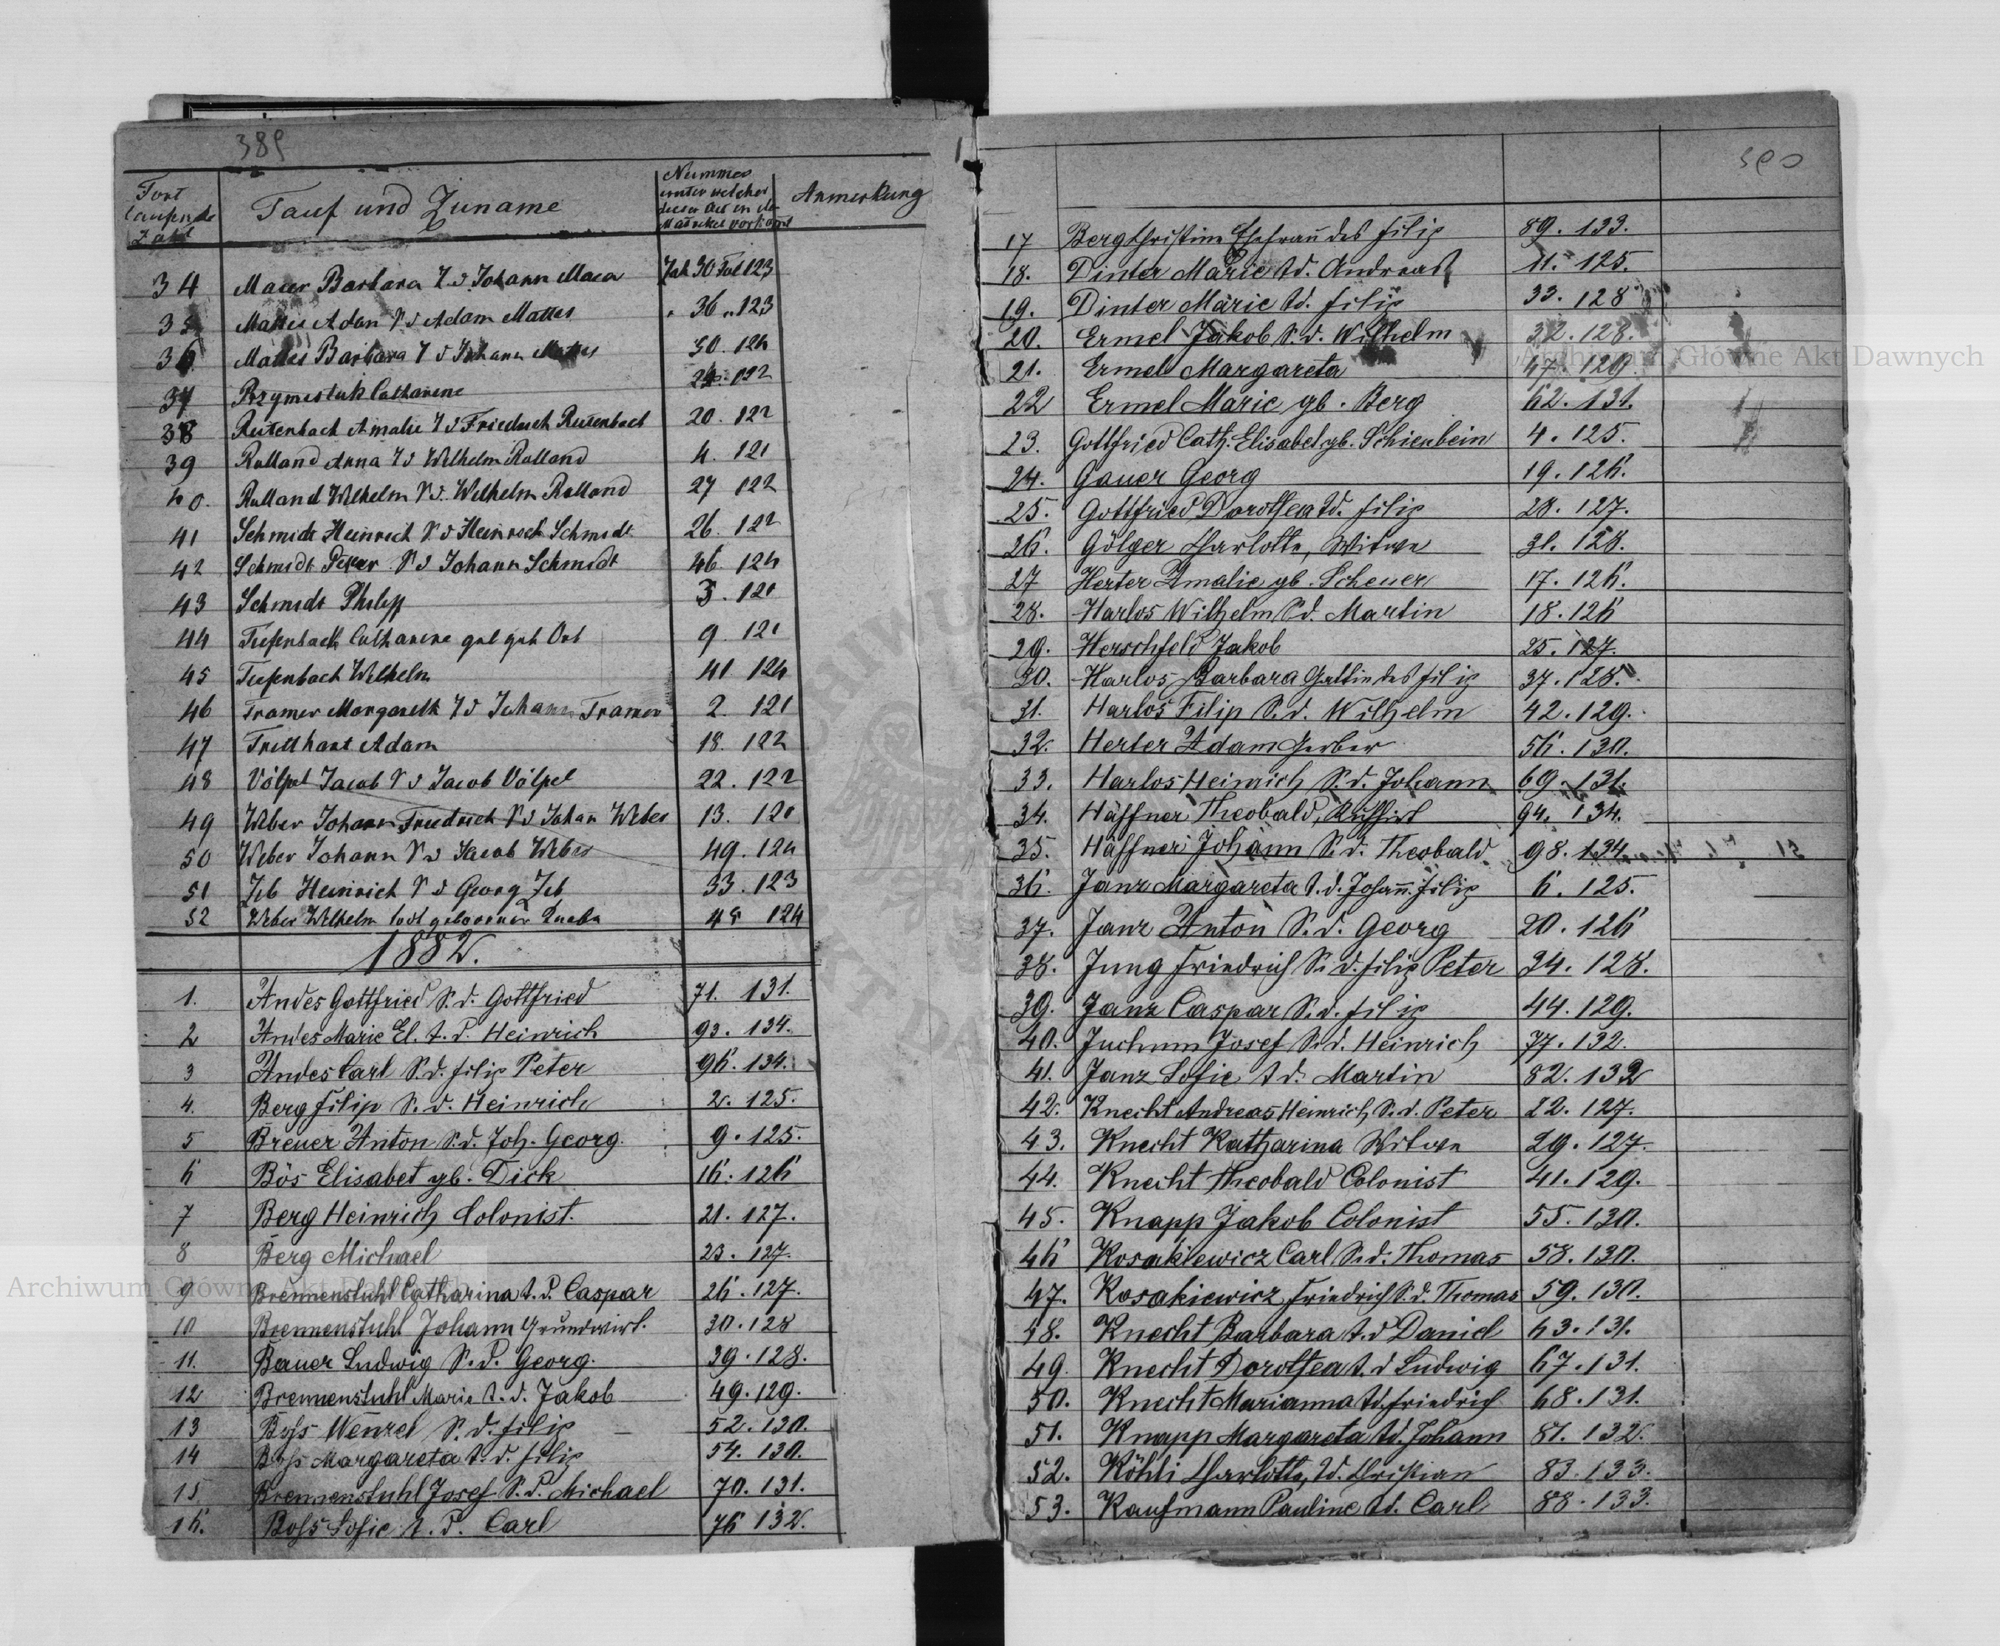 389
Fort laufende Zahl
Tauf und Zuname
Nummer unter welcher dieser Act in der Matrikel vorkömt
Anmerkung
34 Maier Barbara T. d. Johann Maier Zah 30 Fol 123
35 Mattes Adam S d Adam Mattes " 36 " 123
36 Mattes Barbara T d Johann Mattes 50. 124
37 Przymestuk Catharine 122
38 Reitenbach Amalie T d Friedrich Reitenbach 20. 122
39 Rolland Anna T d Wilhelm Rolland 4. 121
40. Rolland Wilhelm S d. Wilhelm Rolland 27 122
41 Schmidt Heinrich S. d Heinrich Schmidt 26. 122
42 Schmidt Peter S d Johann Schmidt 46. 124
43 Schmidt Philipp 3. 121
44 Tiefenbach Catharine geb Ort 9. 121
45 Tiefenbach Wilhelm 41. 124
46 Tramer Margareth T d Johann Tramer 2. 121
47 Tritthart Adam 18. 122
48 Völpel Jacob S d Jacob Völpel 22. 122
49 Weber Johann Friedrich S d Johan Weber 13. 121
50 Weber Johann S d Jacob Weber 49. 124
51 Zeb Heinrich S d Georg Zeb 33. 123
52 Weber Wilhelm todt geborener Knabe 48 124
1882.
1. Andes Gottfried S. d. Gottfried 71. 131.
2 Andes Marie El. t. d. Heinrich 93. 134.
3 Andes Carl S. d. Filip Peter 96. 134.
4. Berg Filip S. d. Heinrich 2. 125.
5 Breuer Anton S. d. Joh. Georg. 9. 125.
6 Bös Elisabet gb. Dick 16. 126
7 Berg Heinrich Colonist. 21. 127.
8 Berg Michael 23. 127.
9 Brennenstuhl Catharina t. d. Caspar 26. 127.
10 Brennenstuhl Johann Grundwirt. 30. 128
11. Bauer Ludwig S. d. Georg. 39. 128.
12 Brennenstuhl Marie t. d. Jakob 49. 129.
13 Boss Wenzel S. d. Filip 52. 130.
14 Boss Margareta t. d. Filip 54. 130.
15 Brennenstuhl Josef S. d. Michael 70. 131.
16. Boss Sofie t. d. Carl 76 132.
390
17 Berg Christine Ehefrau des Filip 89. 133.
18. Dinter Marie td. Andreas 11. 125.
19. Dinter Marie td. Filip 33. 128
20. Ermel Jakob S. d. Wilhelm 32. 128.
21. Ermel Margareta 47. 129.
22 Ermel Marie gb. Berg 62. 131.
23. Gottfried Cath. Elisabet gb. Schienbein 4. 125.
24. Gauer Georg 19. 126.
25. Gottfried Dorothea td. Filip 28. 127.
26. Gölger Charlotte, Witwe 31. 128.
27 Herter Amalie gb. Scheuer 17. 126.
28. Harlos Wilhelm S d. Martin 18. 126
29. Herschfeld Jakob 25. 127.
30. Harlos Barbara Gattin des Filip 37. 128.
31. Harlos Filip S. d. Wilhelm 42. 129.
32. Herter Adam Gerber 56. 130.
33. Harlos Heinrich S. d. Johann 69. 131.
34. Häffner Theobald, 94. 134.
35. Häffner Johann S. d. Theobald 98. 134
36. Janz Margareta t. d. Johann Filip 6. 125.
37. Janz Anton S. d. Georg 20. 126
38. Jung Friedrich S. d. Filip Peter 34. 128.
39. Janz Caspar S. d. Filip 44. 129.
40. Juchum Josef S. d. Heinrich 77. 132.
41. Janz Sofie t d. Martin 82. 132
42. Knecht Andreas Heinrich, S. d. Peter 22. 127.
43. Knecht Katharina Witwe 29. 127.
44. Knecht Theobald Colonist 41. 129.
45. Knapp Jakob Colonist 55. 130.
46 Kosakiewicz Carl S. d. Thomas 58. 130.
47. Kosakiewicz Friedrich S. d. Thomas 59. 130.
48. Knecht Barbara t. d Daniel 63. 131.
49. Knecht Dorothea t. d Ludwig 67. 131.
50. Knecht Marianna td. Friedrich 68. 131.
51. Knapp Margareta td. Johann 81. 132.
52. Köhli Charlotte, td. Christian 83. 133.
53. Kaufmann Pauline td. Carl 88. 133.
Archiwum Główne Akt Dawnych
Archiwum Główne Akt Dawnych